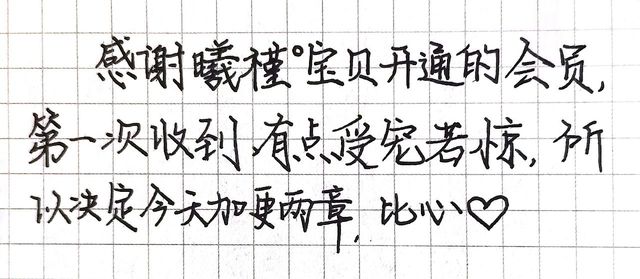 感谢曦槿°宝贝开通的会员,
第一次收到,有点受宠若惊,所
以决定今天加更两章,比心♡